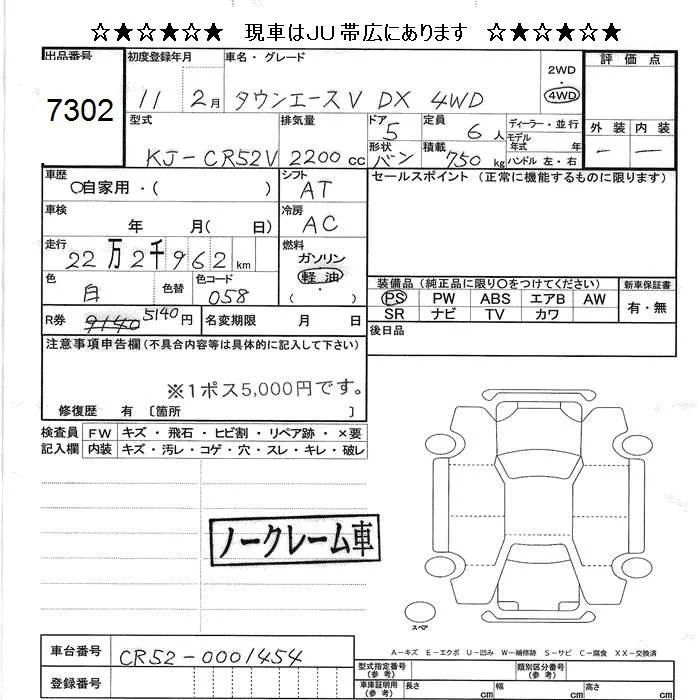 ☆★☆★☆★ 現車はJU帯広にあります ☆★☆★☆★
出品番号 初度登録年月 車名・グレード 2WD ・ 4WD 評価点
7302 11 2月 タウンエースV DX 4WD
型式 排気量 ドア 5 定員 6人 ディーラー・並行 外装 内装
モデル年式 年
KJ-CR52V 2200cc 形状 バン 積載 750kg ハンドル 左・右 － －
車歴 ○自家用・( ) シフト AT セールスポイント (正常に機能するものに限ります)
車検 年 月( 日) 冷房 AC
走行 22万2千962km 燃料 ガソリン 軽油 ( ・ )
色 白 色替 色コード 058
装備品 (純正品に限り○をつけてください) 新車保証書
PS PW ABS エアB AW 有・無
SR ナビ TV カワ
R券 9140 5140円 名変期限 月 日 後日品
注意事項申告欄 (不具合内容等は具体的に記入して下さい)
※1ポス5,000円です。
修復歴 有 〔箇所 〕
検査員 FW キズ・飛石・ヒビ割・リペア跡・×要
記入欄 内装 キズ・汚レ・コゲ・穴・スレ・キレ・破レ
ノークレーム車
スペア
A－キズ E－エクボ U－凹み W－補修跡 S－サビ C－腐食 XX－交換済
車台番号 CR52-0001454
型式指定番号 (参考) 類別区分番号 (参考)
登録番号
車庫証明用 (参考) 長さ cm 幅 cm 高さ cm